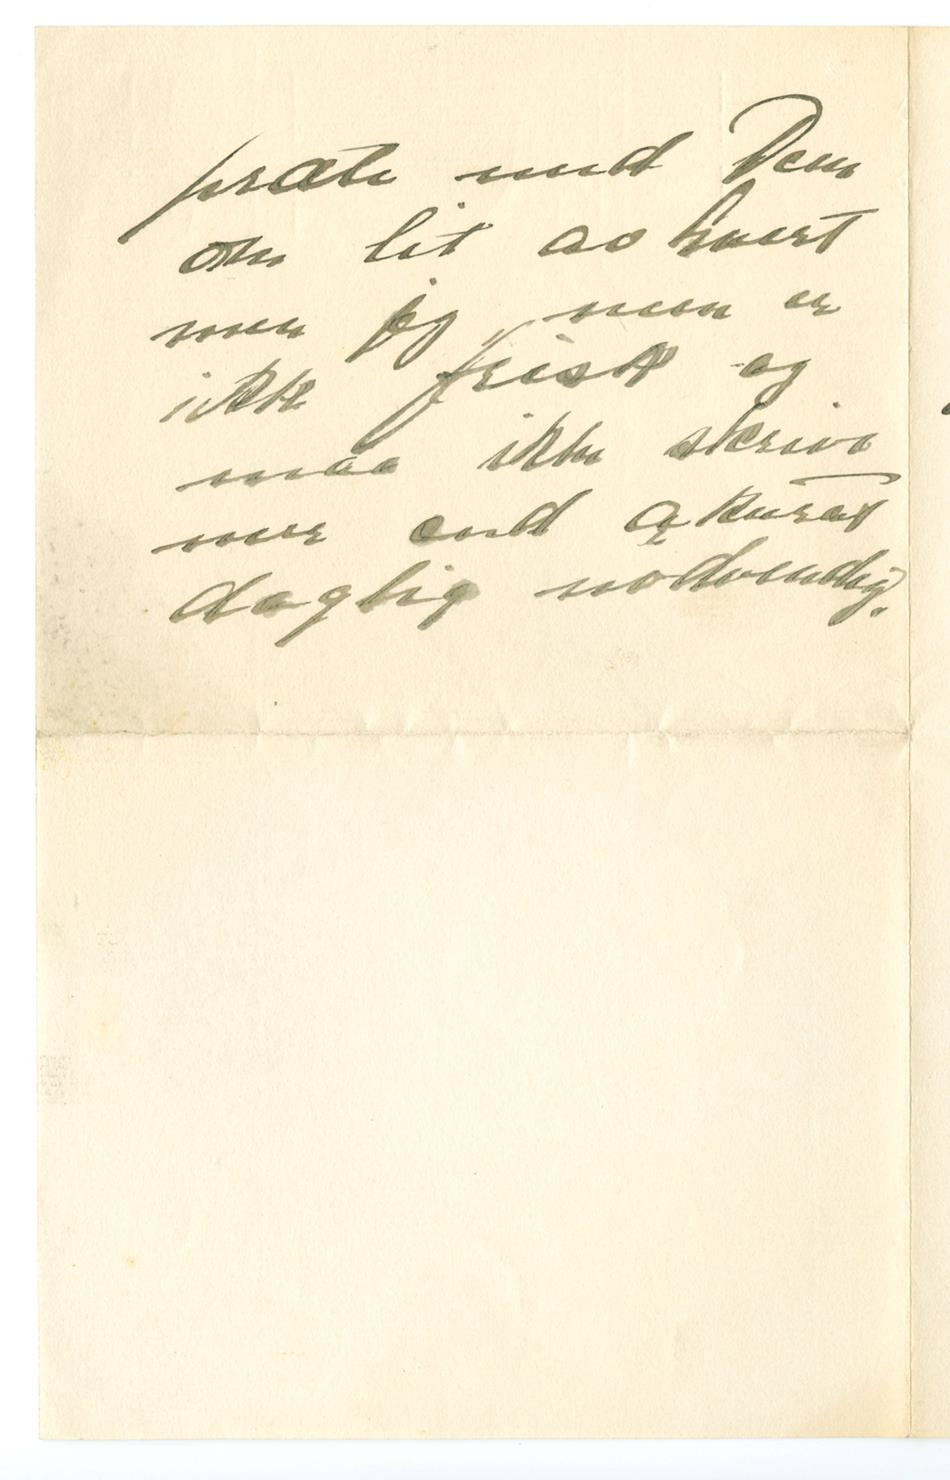 prate med Dem
om lit av hvert
men jeg men er
ikke frisk og
maa ikke skrive
mer end akurat
daglig nødvendig.